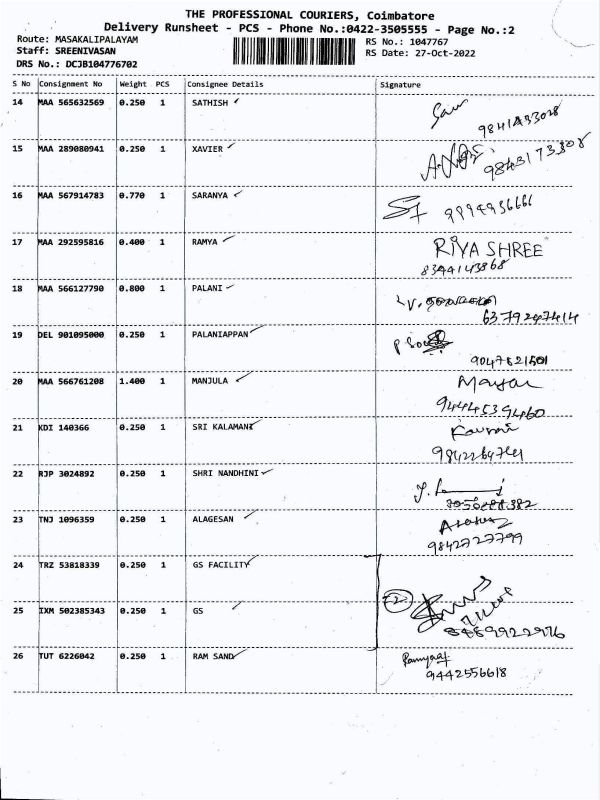 THE PROFESSIONAL COURIERS, Coimbatore
Delivery Runsheet - PCS - Phone No.:0422-3505555 - Page No.:2
Route: MASAKALIPALAYAM RS No.: 1047767
Staff: SREENIVASAN RS Date: 27-Oct-2022
DRS No.: DCJB104776702
S No Consignment No Weight PCS Consignee Details Signature
14 MAA 565632569 0.250 1 SATHISH
15 MAA 289080941 0.250 1 XAVIER
9843173308
16 MAA 567914783 0.770 1 SARANYA
9994936666
17 MAA 292595816 0.400 1 RAMYA RIYA SHREE
8344143868
18 MAA 566127790 0.800 1 PALANI
6379247414
19 DEL 901095000 0.250 1 PALANIAPPAN
20 MAA 566761208 1.400 1 MANJULA
9444539460
21 KDI 140366 0.250 1 SRI KALAMANI
22 RJP 3024892 0.250 1 SHRI NANDHINI
23 TNJ 1096359 0.250 1 ALAGESAN
9842727799
24 TRZ 53818339 0.250 1 GS FACILITY
2
25 IXM 502385343 0.250 1 GS
8489922976
26 TUT 6226042 0.250 1 RAM SAND
9442556618